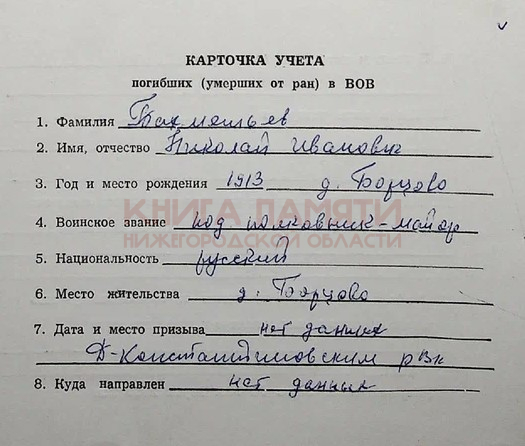 КАРТОЧКА УЧЕТА
погибших (умерших от ран) в ВОВ
1. Фамилия Бахметьев
2. Имя, отчество Николай Иванович
3. Год и место рождения 1913 д. Борцово
КНИГА ПАМЯТИ
4. Воинское звание подполковник-майор
НИЖЕГОРОДСКОЙ ОБЛАСТИ
5. Национальность русский
6. Место жительства д. Борцово
7. Дата и место призыва нет данных
Д-Константиновским рвк
8. Куда направлен нет данных